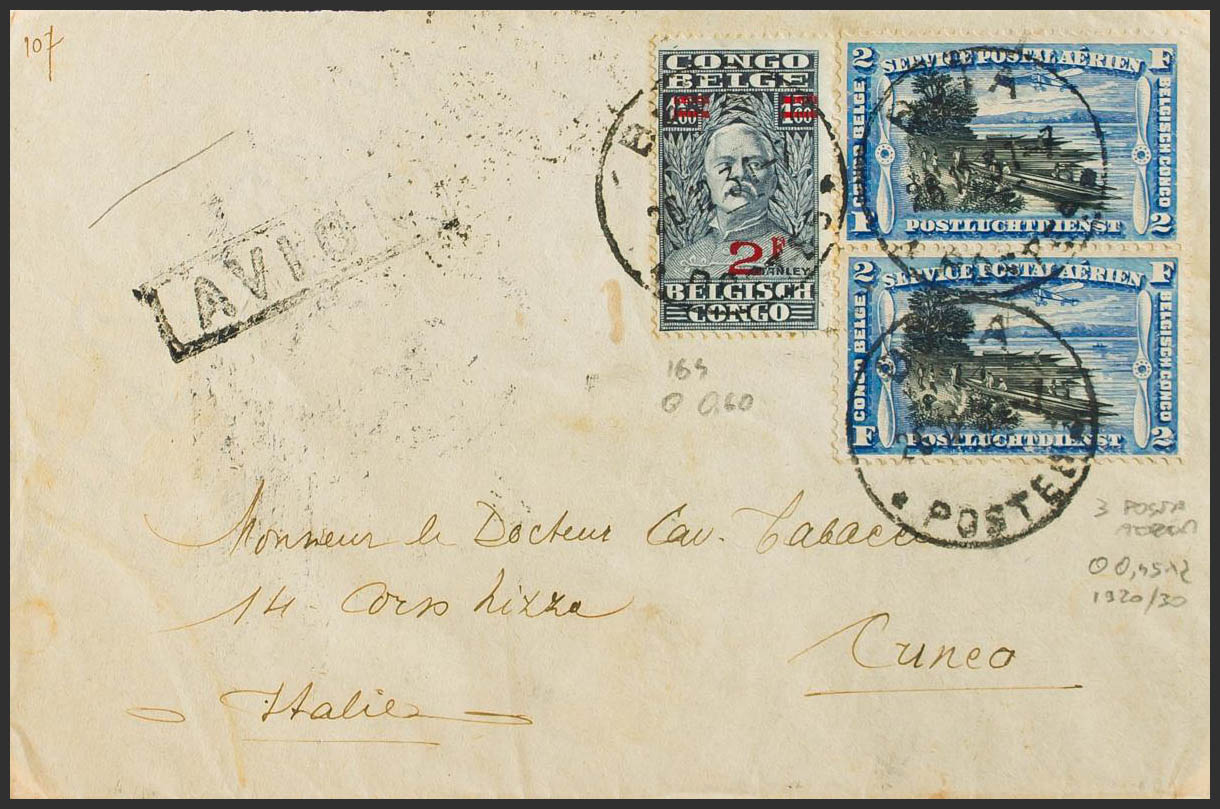 107
CONGO
BELGE
1.60 1.60
2F
STANLEY
BELGISCH
CONGO
2 SERVICE POSTAL AÉRIEN F
CONGO BELGE
BELGISCH CONGO
F POSTLUCHTDIENST 2
2 SERVICE POSTAL AÉRIEN F
CONGO BELGE
BELGISCH CONGO
F POSTLUCHTDIENST 2
* POSTE
AVION
0.60
3 POSTA
1920/30
Monsieur le Docteur Cav.
14 Corso
Cuneo
Italie